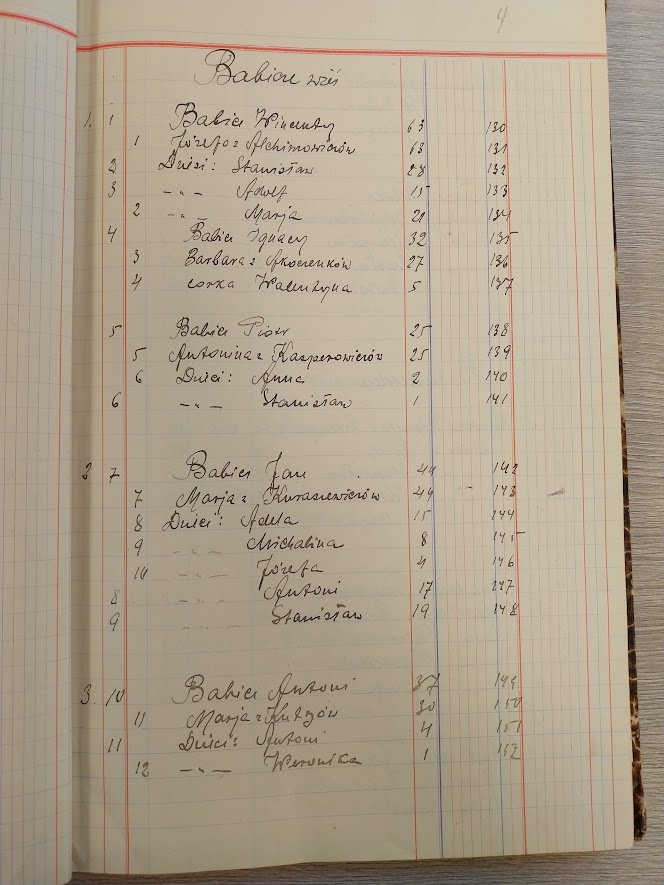 4
Babicze wieś
1. 1 Babicz Wincenty 63 130
1 Józefa z Alchimowiczów 63 131
2 Dzieci: Stanisław 28 132
3 -"- Adolf 15 133
2 -"- Marja 21 134
4 Babicz Ignacy 32 135
3 Barbara z 27 136
4 córka Walentyna 5 137
5 Babicz Piotr 25 138
5 Antonina z Kasperowiczów 25 139
6 Dzieci: Anna 2 140
6 -"- Stanisław 1 141
2 7 Babicz Jan 44 142
7 Marja z Kuraszewiczów 44 143
8 Dzieci: Adela 15 144
9 -"- Michalina 8 145
10 -"- Józefa 4 146
8 -"- Antoni 17 147
9 -"- Stanisław 19 148
3. 10 Babicz Antoni 37 149
11 Marja z 30 150
11 Dzieci: Antoni 4 151
12 -"- Weronika 1 152